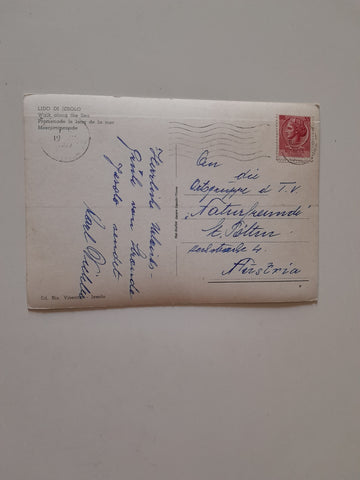 LIDO DI JESOLO
Walk along the Sea
Promenade le long de la mer
Meerpromenade
19
Herzlich Urlaubs-
Grüße vom Strande
Jesolo sendet
Karl
An
die
Ortsgruppe d T.V.
"Naturfreunde"
St. Pölten
4
Austria
Ed. Riz. Jesolo